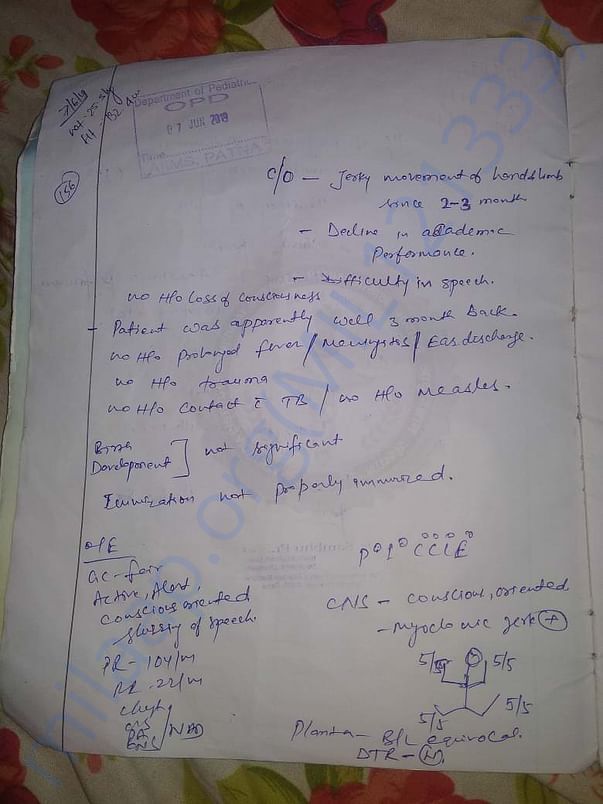 7/6/19
wt - 25.5kg
Ht -
Department of Pediatric
OPD
07 JUN 2019
Time
AIIMS, PATNA
156
C/O - Jerky movement of hand & limb
since 2-3 month
- Decline in academic
Performance.
- Difficulty in speech.
no H/o Loss of consciousness
- Patient was apparently well 3 month back.
no H/o prolonged fever / / Ear discharge.
no H/o trauma
no H/o contact c̄ TB / no H/o Measles.
Birth
Development ] not significant
Immunization not properly immunized.
O/E
GC - fair
Active, Alert,
conscious oriented
slurring of speech.
PR - 104/m
RR - 22/m
chest
CVS
PA / NAD
CNS
P⁰ I⁰ C⁰ C⁰ L⁰ E⁰
CNS - conscious, oriented
- myoclonic jerk (+)
5/5 5/5
5/5 5/5
Planta - B/L equivocal.
DTR - (N)
milaap.org